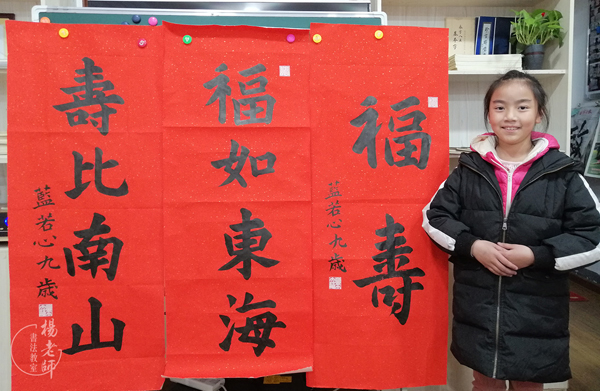 福壽
藍若心九歲
福如東海
壽比南山
藍若心九歲
楊老師
書法教室